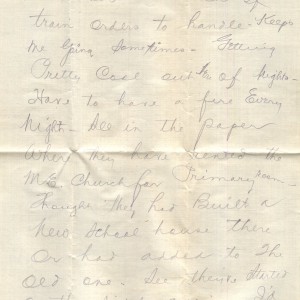 of
train orders to handle - Keeps
me going sometimes - Getting
Pretty Cool out of Nights -
Have to have a fire Every
Night - See in the paper
Where they have rented the
M.E. Church for Primary room -
Thought they had Built a
New School house there
Or had added to The
Old one. See they're started
I'd